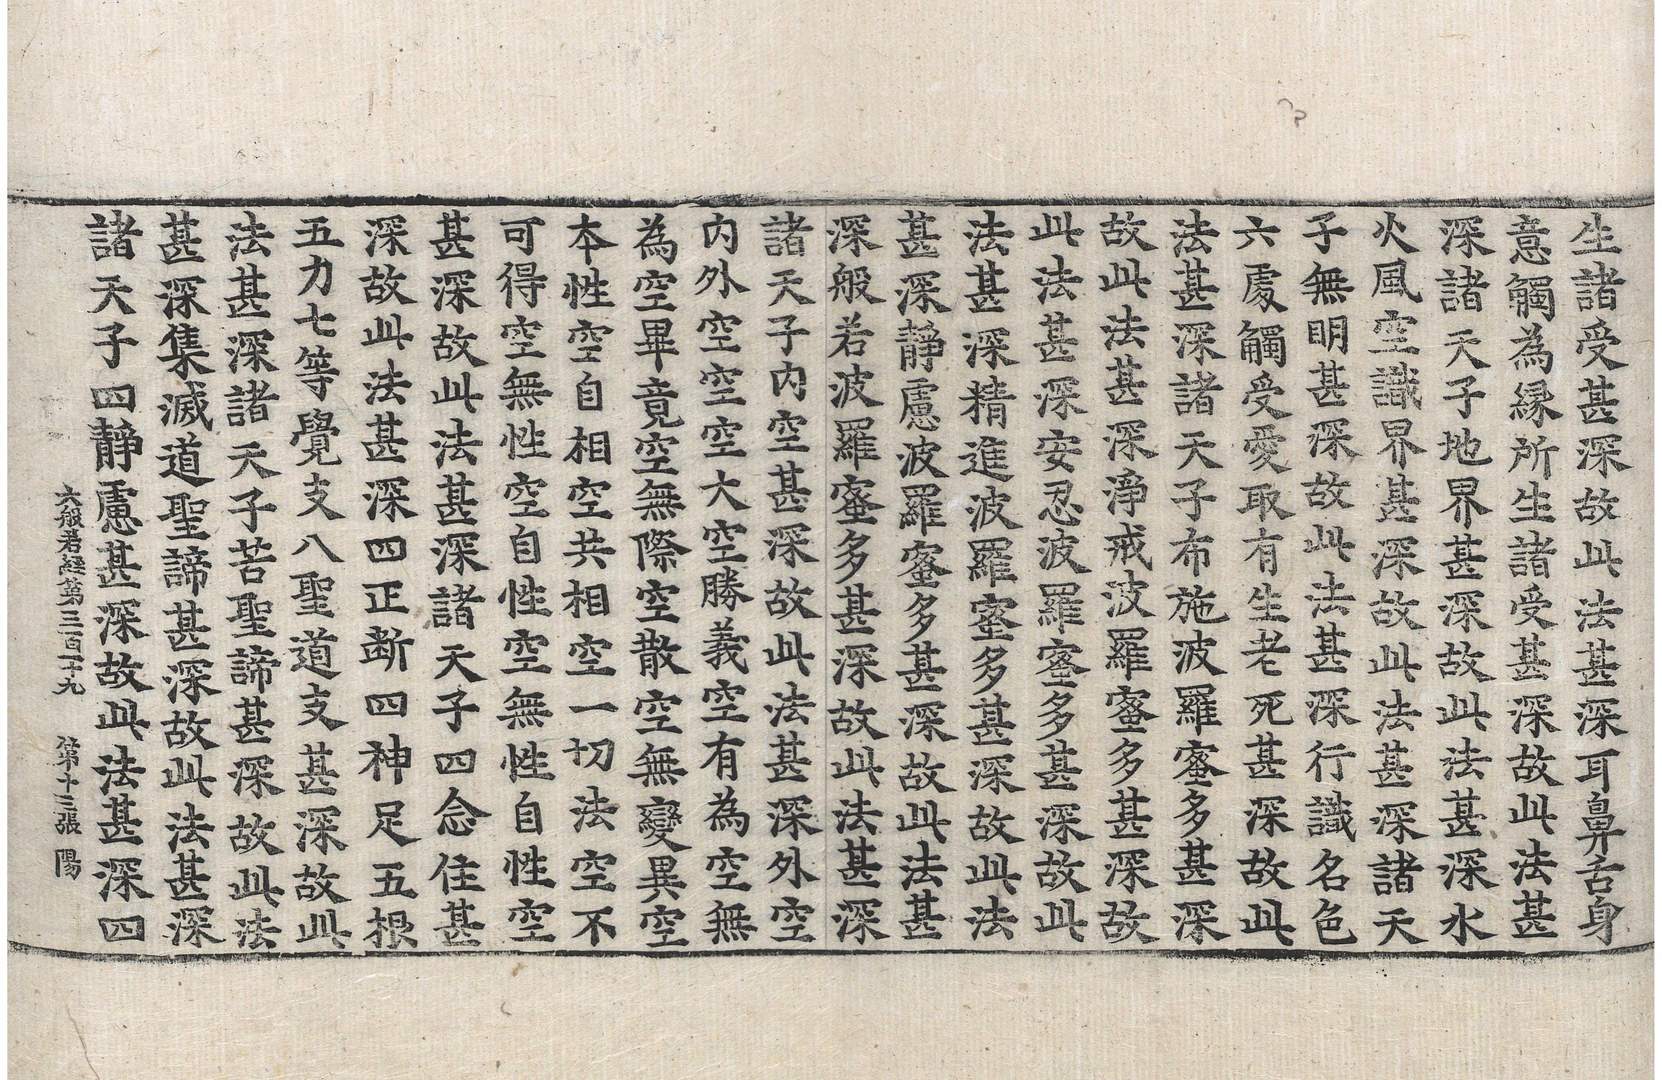 生諸受甚深故此法甚深耳鼻舌身
意觸為緣所生諸受甚深故此法甚
深諸天子地界甚深故此法甚深水
火風空識界甚深故此法甚深諸天
子無明甚深故此法甚深行識名色
六處觸受愛取有生老死甚深故此
法甚深諸天子布施波羅蜜多甚深
故此法甚深淨戒波羅蜜多甚深故
此法甚深安忍波羅蜜多甚深故此
法甚深精進波羅蜜多甚深故此法
甚深靜慮波羅蜜多甚深故此法甚
深般若波羅蜜多甚深故此法甚深
諸天子內空甚深故此法甚深外空
內外空空空大空勝義空有為空無
為空畢竟空無際空散空無變異空
本性空自相空共相空一切法空不
可得空無性空自性空無性自性空
甚深故此法甚深諸天子四念住甚
深故此法甚深四正斷四神足五根
五力七等覺支八聖道支甚深故此
法甚深諸天子苦聖諦甚深故此法
甚深集滅道聖諦甚深故此法甚深
諸天子四靜慮甚深故此法甚深四
六般若經第三百一十九 第十三張 陽